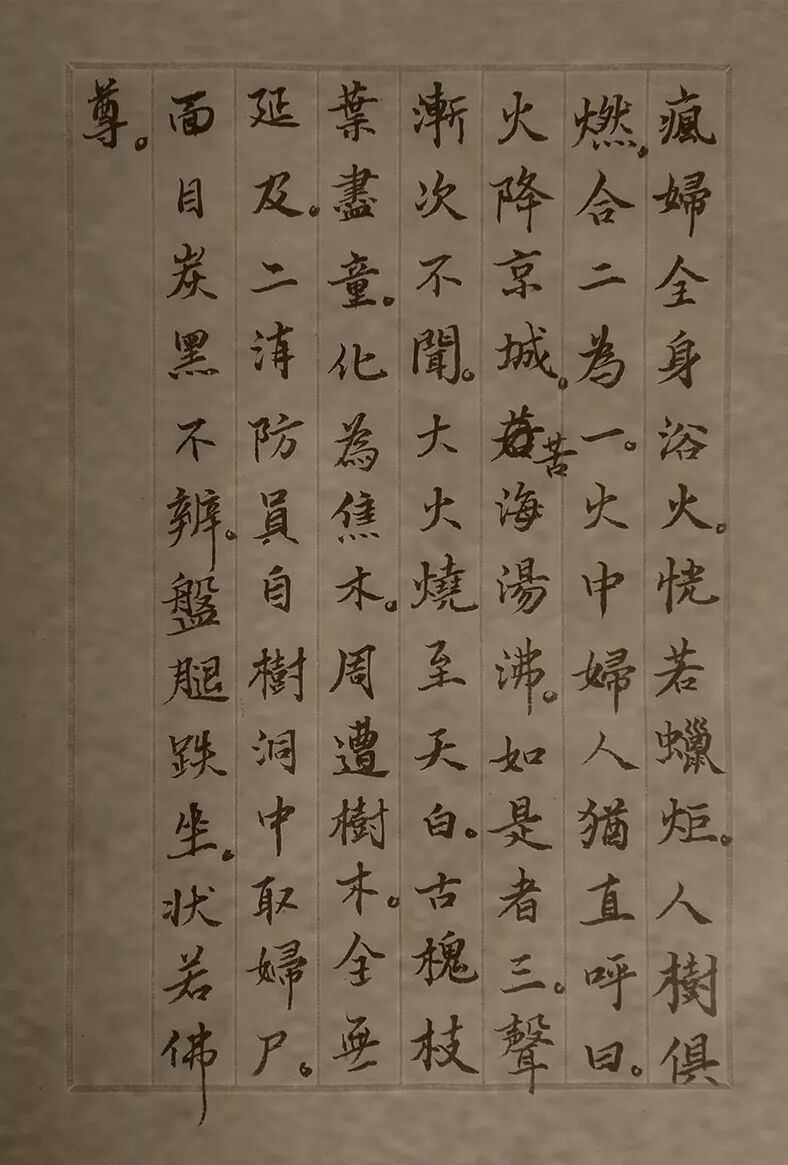 瘋婦全身浴火。恍若蠟炬。人樹俱
燃。合二為一。火中婦人猶直呼曰。
火降京城。苦海湯沸。如是者三。聲
漸次不聞。大火燒至天白。古槐枝
葉盡童。化為焦木。周遭樹木。全無
延及。二消防員自樹洞中取婦尸。
面目炭黑不辨。盤腿趺坐。狀若佛
尊。